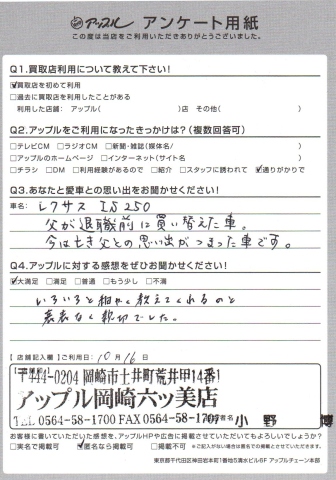 アップル アンケート用紙
この度は当店をご利用いただきありがとうございました。
Q1.買取店利用について教えて下さい!
☑買取店を初めて利用
□過去に買取店を利用したことがある
利用した店舗: アップル( )店 その他( )
Q2.アップルをご利用になったきっかけは?(複数回答可)
□テレビCM □ラジオCM □新聞・雑誌(媒体名/ )
□アップルのホームページ □インターネット(サイト名 )
□チラシ □DM □利用経験があるので □紹介 □スタッフに誘われて ☑通りがかりで
Q3.あなたと愛車との思い出をお聞かせください!
車名: レクサス IS250
父が退職前に買い替えた車。
今は亡き父との思い出がつまった車です。
Q4.アップルに対する感想をぜひお聞かせください!
☑大満足 □満足 □普通 □もう少し □不満
いろいろと細かく教えてくれるのと
裏表なく親切でした。
【店舗記入欄】ご利用日: 10月16日
〒444-0204 岡崎市土井町荒井甲14番1
アップル岡崎六ッ美店
TEL 0564-58-1700 FAX 0564-58-1707 小野 博
お客様に書いていただいた感想を、アップルHPや広告に掲載させていただいてもよろしいでしょうか?
□実名で掲載可 ☑匿名なら掲載可 □掲載不可 ※ご記入がない場合は匿名での掲載とさせていただきます。
東京都千代田区神田岩本町1番地5清水ビル6F アップルチェーン本部